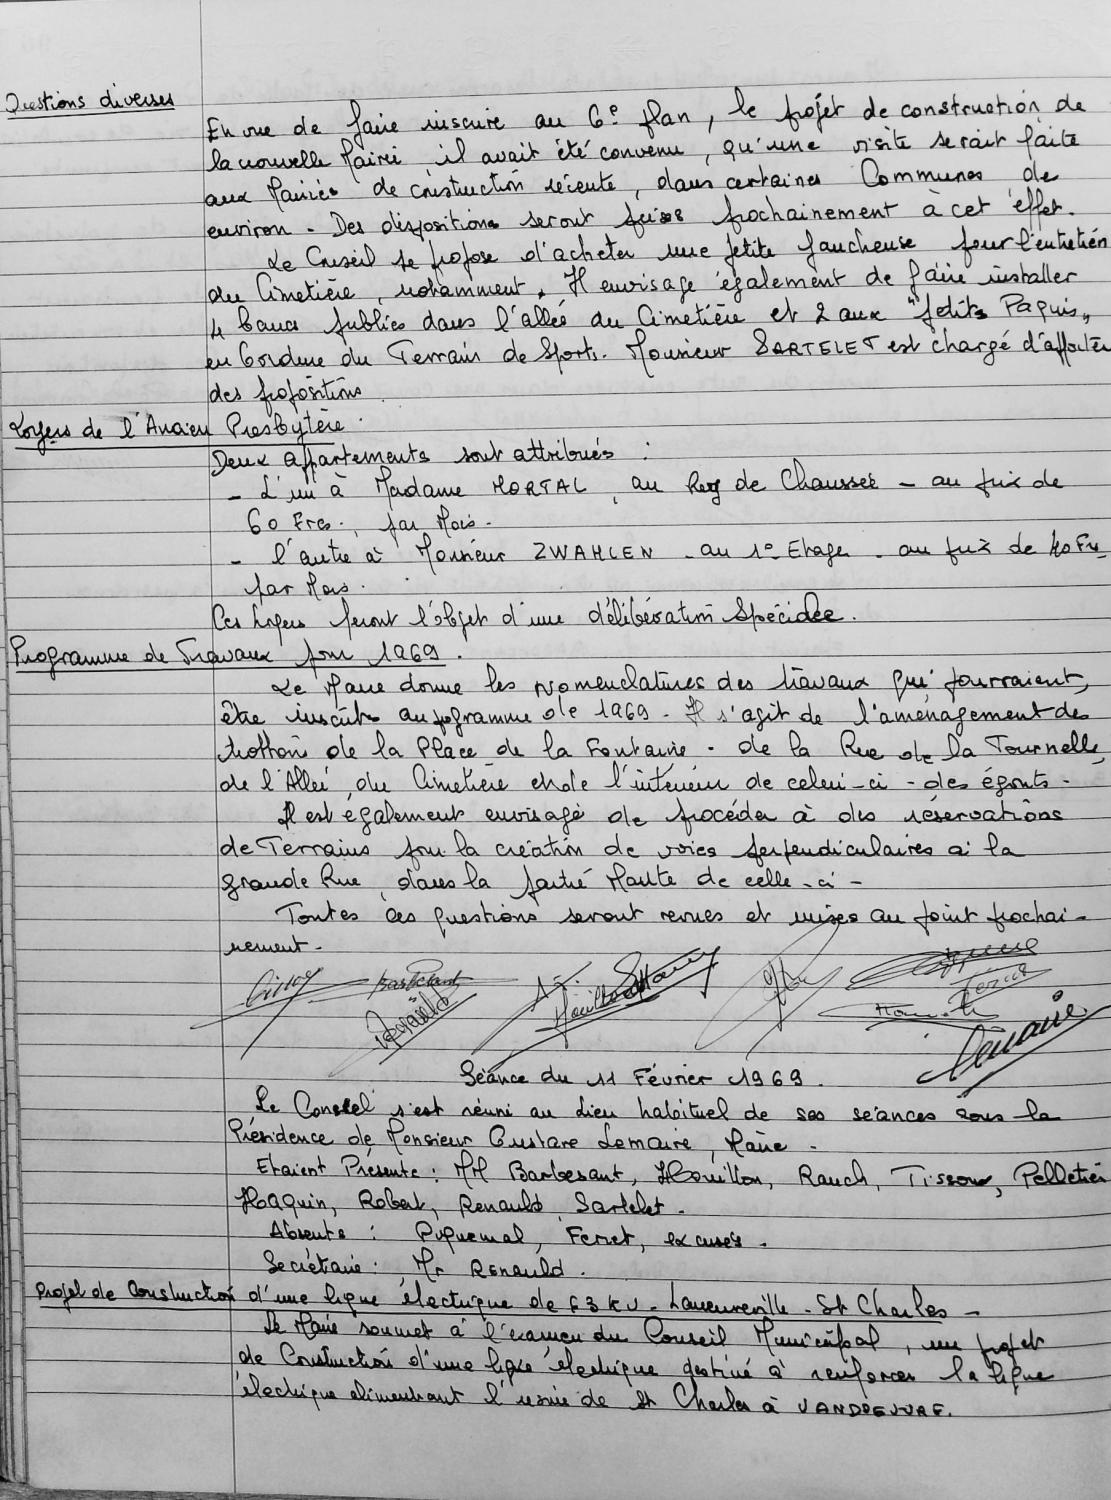 Questions diverses
En vue de faire inscrire au 6e plan, le projet de construction de
la nouvelle Mairie il avait été convenu, qu'une visite serait faite
aux Mairies de construction récente, dans certaines Communes de
environ - Des dispositions seront prises prochainement à cet effet.
Le Conseil se propose d'acheter une petite faucheuse pour l'entretien
du Cimetière, notamment. Il envisage également de faire installer
4 bancs publics dans l'allée du Cimetière et 2 aux "petits Paquis"
en bordure du Terrain de Sports. Monsieur SARTELET est chargé d'apporter
des propositions.
Loyers de l'Ancien Presbytère.
Deux appartements sont attribués :
- L'un à Madame MORTAL, au Rez de Chaussée - au prix de
60 Frcs., par Mois.
- l'autre à Monsieur ZWAHLEN - au 1° Etage - au prix de 40 Frs
par Mois.
Ces loyers feront l'objet d'une délibération spéciale.
Programme de Travaux pour 1969.
Le Maire donne les nomenclatures des travaux qui pourraient,
être inscrits au programme de 1969. Il s'agit de l'aménagement des
trottoirs de la Place de la Fontaine - de la Rue de la Tournelle,
de l'Allée, du Cimetière et de l'intérieur de celui-ci - des égouts -
Il est également envisagé de procéder à des réservations
de Terrains pour la création de voies perpendiculaires à la
grande Rue, dans la partie Haute de celle-ci -
Toutes ces questions seront revues et mises au point prochai-
nement -
Lemaire
Séance du 11 Février 1969.
Le Conseil s'est réuni au Lieu habituel de ses séances sous la
Présidence de Monsieur Gustave Lemaire, Maire -
Etaient Présents : MM Barbesant, Houillon, Rauch, Tissour, Pelletier
Hoaquin, Robert, Renauld, Sartelet.
Absents : Puquemal, Ferret, excusés.
Secrétaire : Mr Renauld.
Projet de Construction d'une ligne électrique de 63 KV - Laneuveville - St Charles -
Le Maire soumet à l'examen du Conseil Municipal, un projet
de Construction d'une ligne électrique destiné à renforcer la ligne
électrique alimentant l'usine de St Charles à VANDOEUVRE.